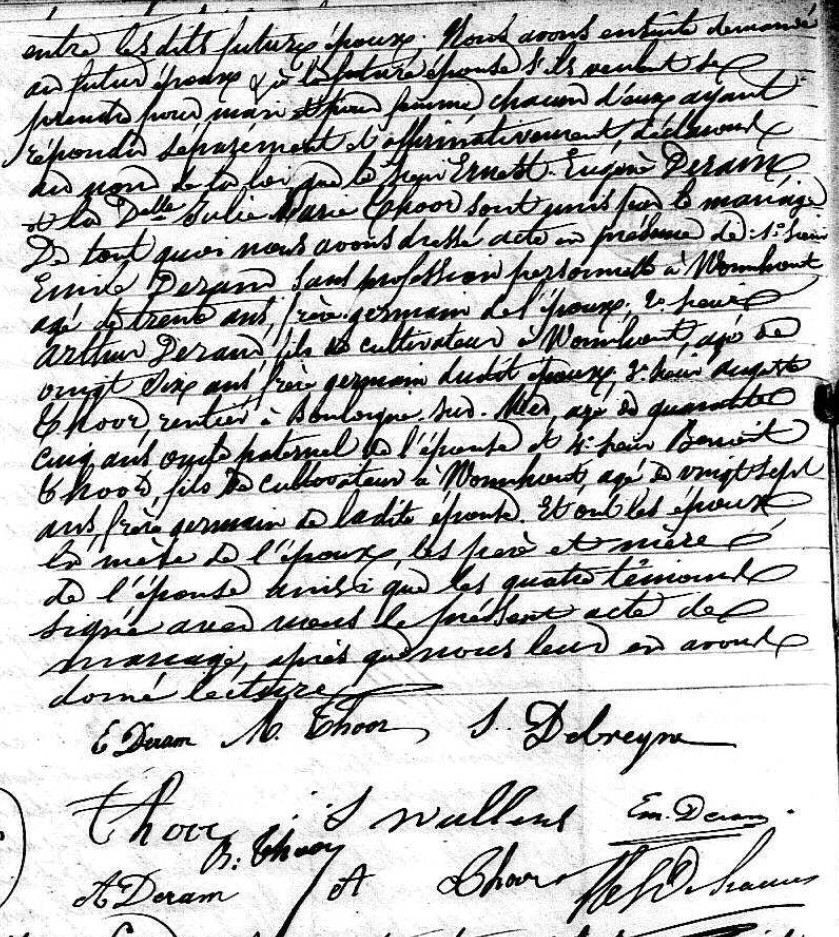 entre les dits futurs époux, Nous avons ensuite demandé
au futur époux & à la future épouse s'ils veulent se
prendre pour mari et pour femme chacun d'eux ayant
répondu séparément et affirmativement, déclarons
au nom de la loi que le sieur Ernest Eugène Deram
et la Delle Julie Marie Thoor sont unis par le mariage
De tout quoi nous avons dressé acte en présence de: 1° sieur
Emile Deram sans profession personnelle à Wormhout
agé de trente ans, frère germain de l'époux; 2° sieur
Arthur Deram fils de cultivateur à Wormhout, agé de
vingt six ans frère germain dudit époux, 3° sieur Auguste
Thoor, rentier à Boulogne-sur-Mer, agé de quarante
cinq ans oncle paternel de l'épouse et 4° sieur Benoit
Thoor, fils de cultivateur à Wormhout, agé de vingt sept
ans, frère germain de ladite épouse. Et ont les époux
la mère de l'époux, les père et mère
de l'épouse ainsi que les quatre témoins
signé avec nous le présent acte de
mariage, après que nous leur en avons
donné lecture
E Deram M. Thoor S. Debreyne
Thoor S Wullens Em. Deram.
B. Thoor
A Deram A Thoor